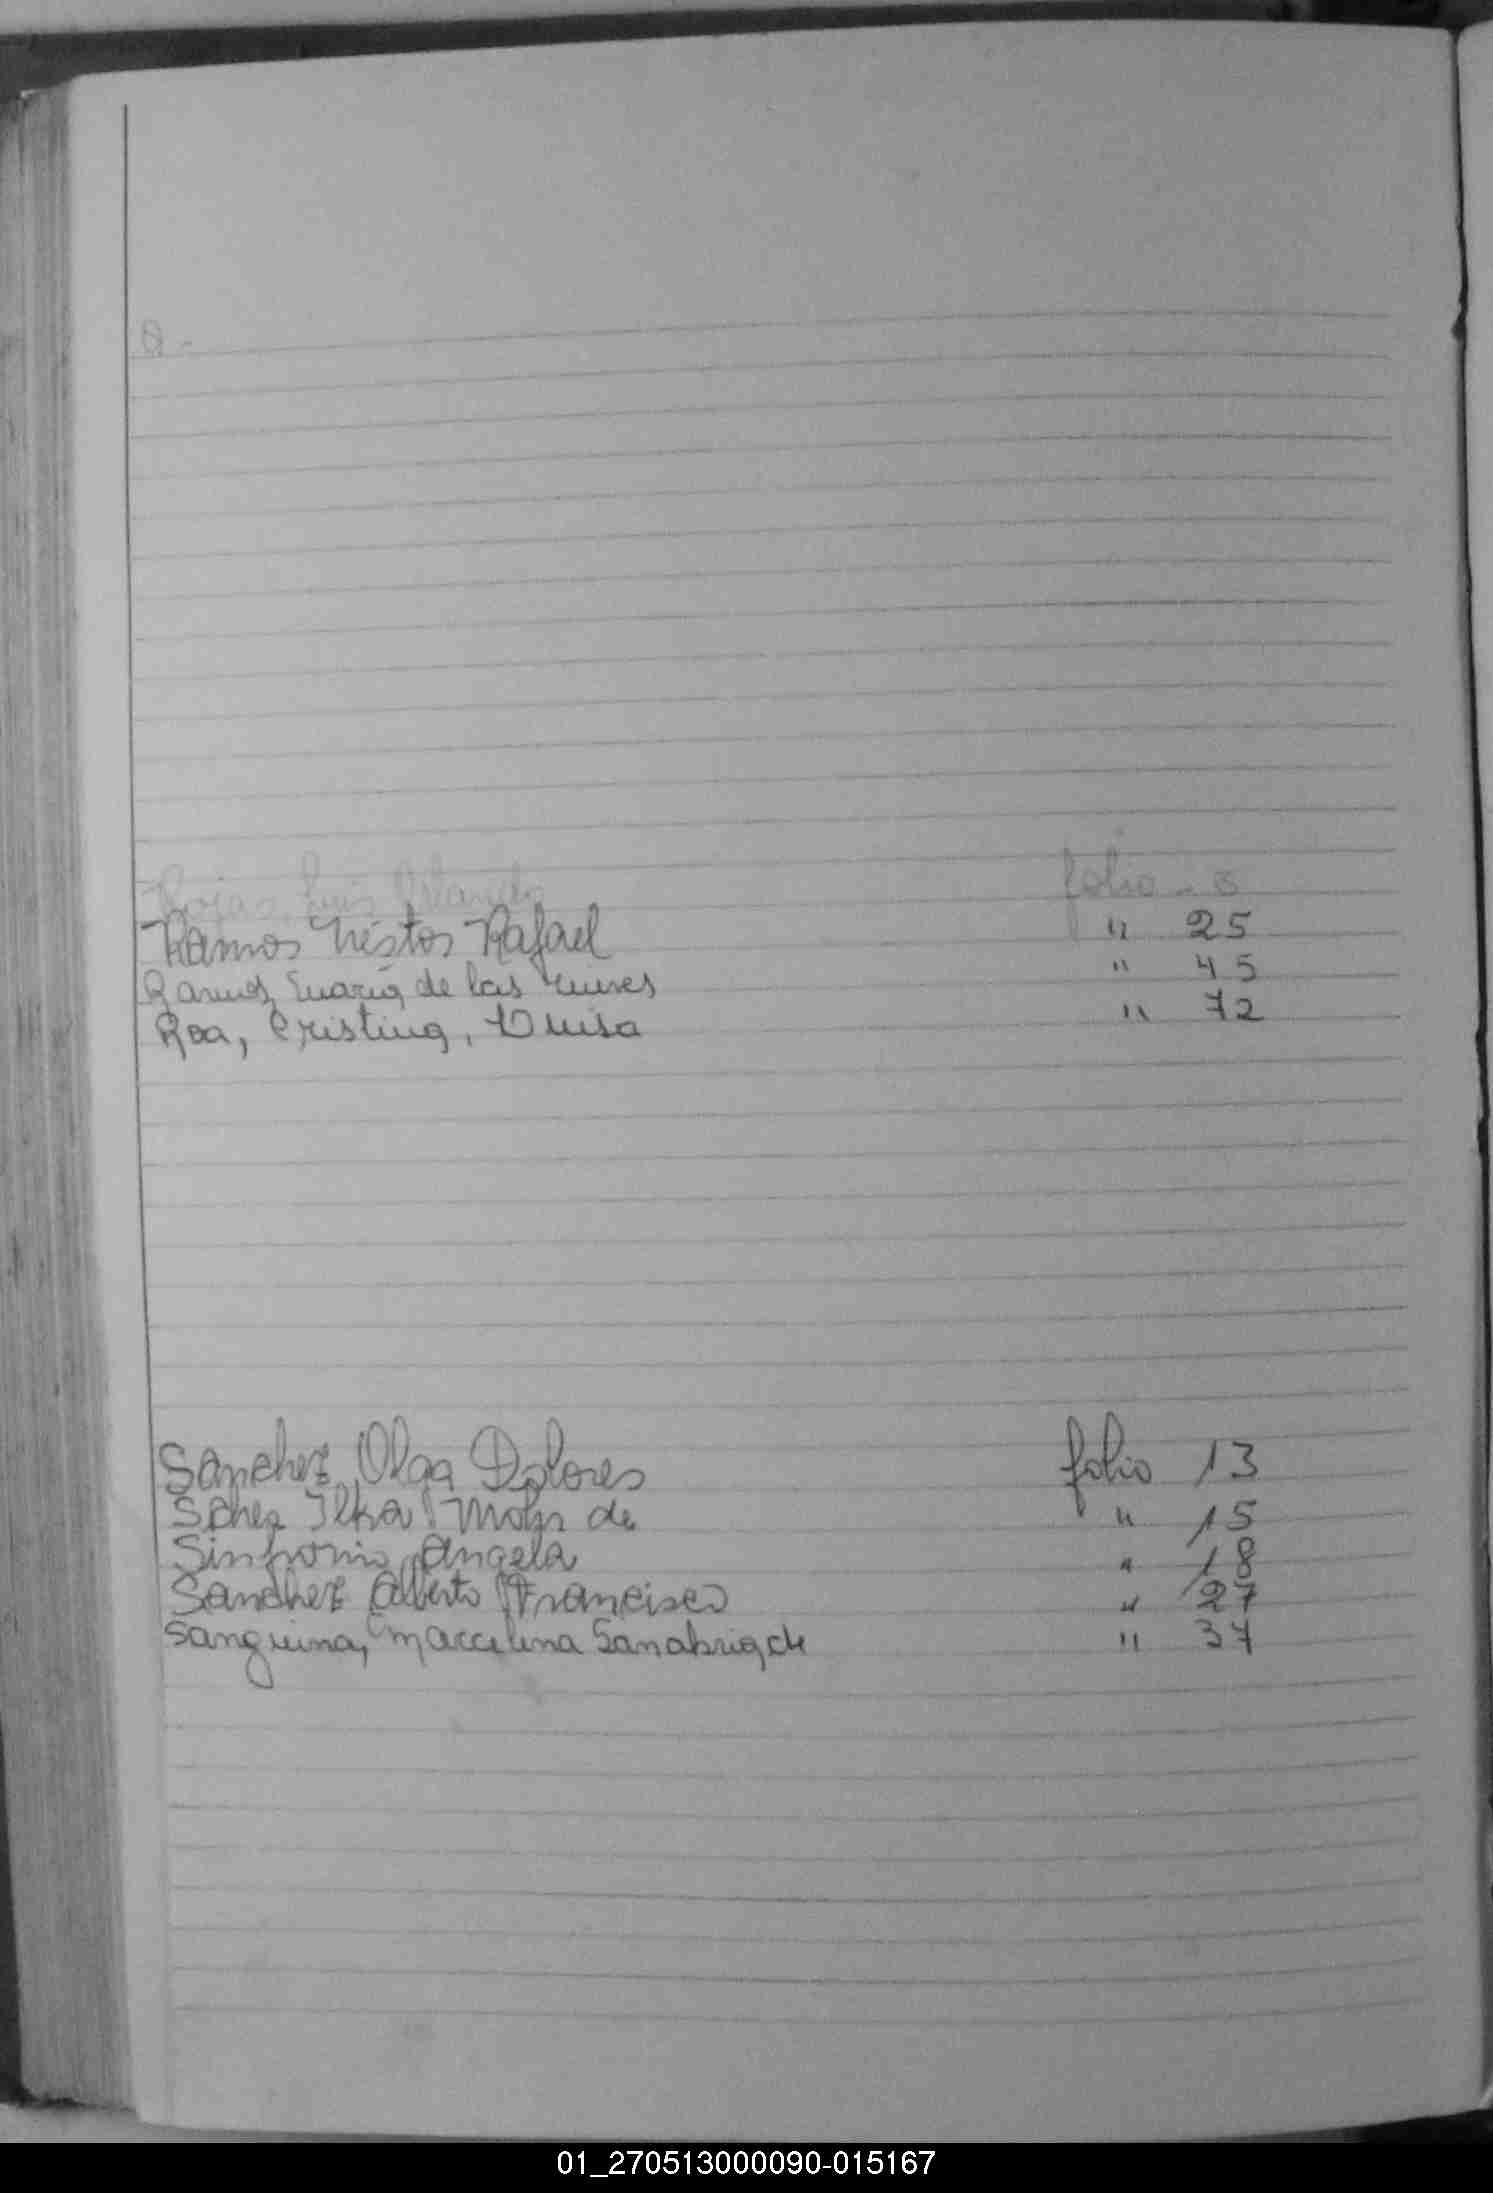 Q -
Rojas, Luis Orlando folio - 8
Ramos Néstor Rafael " 25
Ramos, María de las Nieves " 45
Roa, Cristina, Luisa " 72
Sanchez, Olga Dolores folio 13
Ilka de " 15
Angela " 18
Sanchez Alberto Francisco " 27
Sanguina, Marcelina Sanabria de " 37
01_270513000090-015167